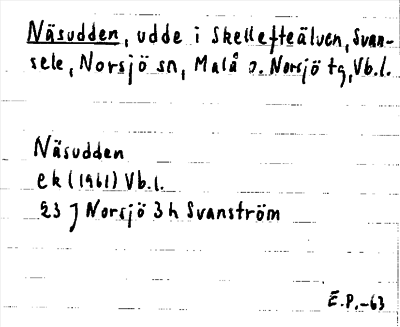 Näsudden, udde i Skellefteälven, Svan-
sele, Norsjö sn, Malå o. Norsjö tg, Vb.l.
Näsudden
ek (1961) Vb.l.
23 J Norsjö 3 h Svanström
E.P.-63